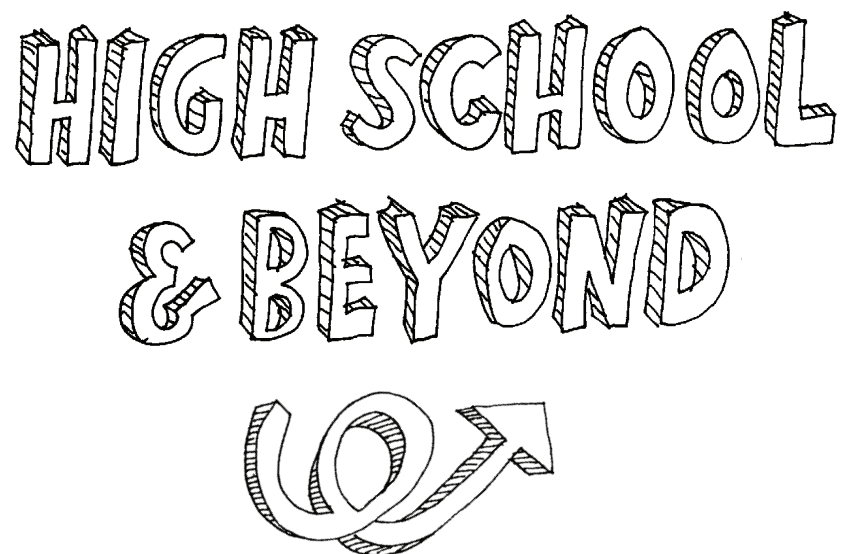 HIGH SCHOOL
& BEYOND